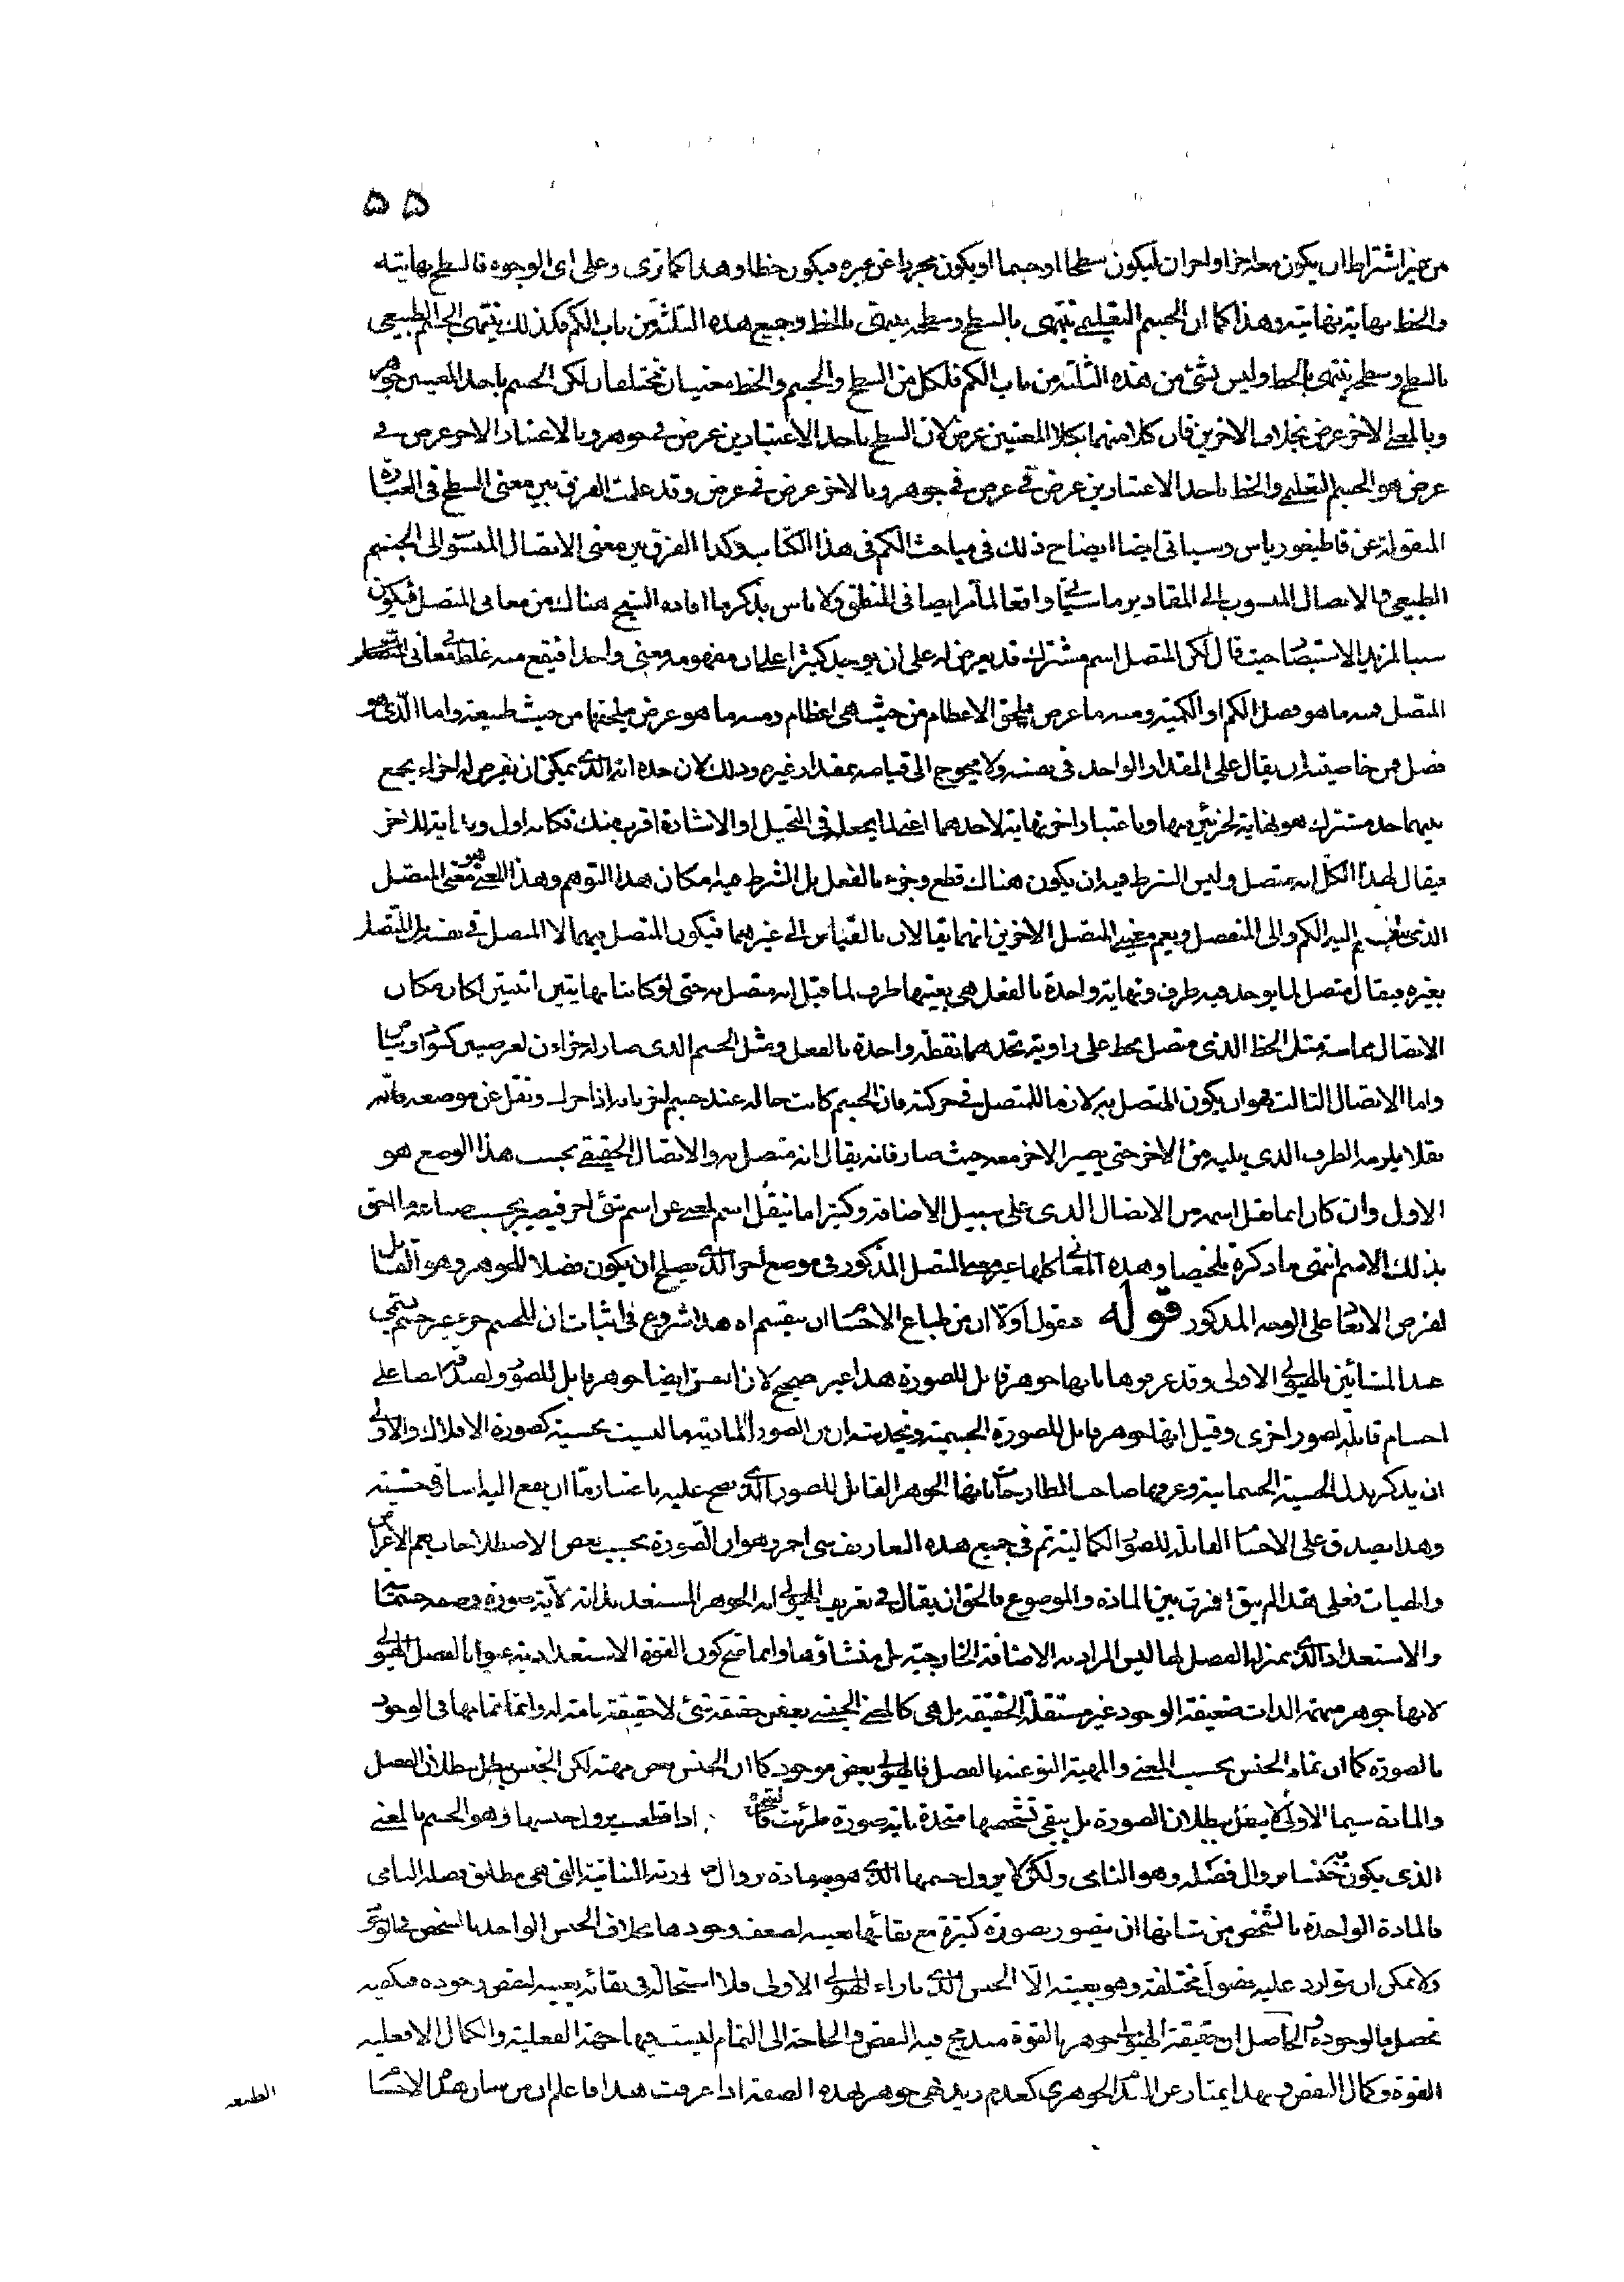 ۵۵
من غير اشتراط ان يكون معه جزء او اجزاء ليكون سطحا او جسما او يكون مجردا عن غيره فيكون خطا وهذا كما ترى وعلى اى الوجوه فالسطح نهايته
والخط نهاية نهايته وهذا كما ان الجسم التعليمى ينتهى بالسطح وسطحه ينتهى بالخط وجميع هذه الثلثة من باب الكم فكذلك ينتهى الجسم الطبيعى
بالسطح وسطحه ينتهى بالخط وليس شئ من هذه الثلثة من باب الكم فلكل من السطح والجسم والخط معنيان مختلفان لكن الجسم باحد المعنيين جوهر
وبالمعنى الاخر عرض بخلاف الاخرين فان كلا منهما بكلا المعنيين عرض لان السطح باحد الاعتبارين عرض فى جوهر وبالاعتبار الاخر عرض فى
عرض هو الجسم التعليمى والخط باحد الاعتبارين عرض فى عرض فى جوهر وبالاخر عرض فى عرض وقد علمت الفرق بين معنى السطح فى العبارة
المنقولة عن قاطيغورياس وسياتى ايضا ايضاح ذلك فى مباحث الكم فى هذا الكتاب وكذا الفرق بين معنى الاتصال المنسوب الى الجسم
الطبيعى والاتصال المنسوب الى المقادير مما سيجئ واقعا لما مر ايضا فى المنطق ولا باس بذكر ما افاده الشيخ هناك من معانى المتصل فيكون
سببا لمزيد الاستبصار حيث قال لكن المتصل اسم مشترك قد يعرض له على ان يوجد كثيرا على ان مفهومه معنى واحد فيقع منه غلط فى معانى
المتصل فمنه ما هو فصل الكم او الكمية ومنه ما عرض يلحق الاعظام من حيث هى اعظام ومنه ما هو عرض يلحقها من حيث طبيعته واما الذى هو
فصل فمن خاصيته ان يقال على المقدار الواحد فى نفسه ولا يحوج الى قياسه بمقدار غيره وذلك لان حده انه الذى يمكن ان يفرض له اجزاء يجمع
بينهما حد مشترك هو نهاية لجزئين منها وباعتبار اخر نهاية لاحدهما اعنى لما يجعله فى التخيل او الاشارة اقرب منك فكانه اول وبداية للاخر
فيقال لهذا الكل انه متصل وليس الشرط فيه ان يكون هناك قطع وجزء بالفعل بل الشرط فيه امكان هذا التوهم وهذا المعنى هو معنى المتصل
الذى ينقسم اليه الكم والى المنفصل ويعم معنيى المتصل الاخرين انهما يقالان بالقياس الى غيرهما فيكون المتصل فيهما لا المتصل فى نفسه بل المتصل
بغيره فيقال متصل لما يوجد فيه طرف ونهاية واحدة بالفعل هى بعينها طرف لما قيل انه متصل به حتى لو كانتا نهايتين اثنتين لكان مكان
الاتصال مماسة مثل الخط الذى متصل بخط على زاوية تحدهما نقطة واحدة بالفعل ومثل الجسم الذى صار له جزءان لعرضين كسواد وبياض
واما الاتصال الثالث فهو ان يكون المتصل به لازما للمتصل فى حركته فان الجسم كانت حاله عند جسم اخر بانه اذا حرك ونقل عن موضعه فانه
نقلا يلزمه الطرف الذى يليه من الاخر حتى يصير الاخر معه حيث صار فانه يقال انه متصل به والاتصال الحقيقى بحسب هذا الوضع هو
الاول وان كان انما نقل اسمه من الاتصال الذى على سبيل الاضافة وكثيرا ما ينقل اسم لمعنى عن اسم شئ اخر فيصير بحسب صناعة احق
بذلك الاسم انتهى ما ذكره تلخيصا وهذه المعانى كلها غير معنى المتصل المذكور فى موضع اخر الذى يصلح ان يكون فصلا للجوهر وهو القابل
لفرض الابعاد على الوجه المذكور قوله فنقول اولا ان من طباع الاجسام ان ينقسم اه هذا شروع فى اثبات ان للجسم جزء غير جسم يسمى
عند المشائين بالهيولى الاولى وقد عرفوها بانها جوهر قابل للصورة هذا غير صحيح لان النفس ايضا جوهر قابل للصور ولصدقه ايضا على
اجسام قابلة لصور اخرى وقيل انها جوهر قابل للصورة الجسمية ويخدشه ان من الصور المادية ما ليست بحسية كصورة الافلاك والاولى
ان يذكر بدل الحسية الجسمانية وعرفها صاحب المطارحات بانها الجوهر القابل للصور الذى يصح عليه باعتبار ما ان يقع اليه اشارة حسية
وهذا يصدق على الاجسام القابلة للصور الكمالية ثم فى جميع هذه التعاريف شئ اخر وهو ان الصورة بحسب بعض الاصطلاحات يعم الاعراض
والهيات فعلى هذا لم يبق فرق بين المادة والموضوع فالحق ان يقال فى تعريف الهيولى انه الجوهر المستعد بذاته لاية صورة وصفة جسمانية
والاستعداد الذى بمنزلة الفصل لها ليس المراد به الاضافة الخارجية بل منشاؤها وانما صح كون القوة الاستعدادية عنوانا لفصل الهيولى
لانها جوهر مبهمة الذات ضعيفة الوجود غير مستقلة الحقيقة بل هى كالمعنى الجنسى بعض حقيقة شئ لا حقيقة تامة له وانما تمامها فى الوجود
بالصورة كما ان تمام الجنس بحسب المعنى والمهية النوعية بالفصل فالهيولى بعض موجود كما ان الجنس بعض مهية لكن الجنس يبطل ببطلان الفصل
والمادة سيما الاولى لا يبطل ببطلان الصورة بل يبقى تشخصها متحدة باية صورة طرئت اذا قطعت يزول جنسيها وهو الجسم بالمعنى
الذى يكون به جنسا بزوال فصله وهو النامى ولكن لا يزول جسمها الذى هو به مادة بزوال النباتية التى هى مطلق فصله النامى
فالمادة الواحدة بالشخص من شانها ان يتصور بصورة كثيرة مع بقائها بعينه لضعف وجودها بخلاف الجنس الواحد بالشخص فى
ولا يمكن ان يتوارد عليه فصول مختلفة وهو بعينه الا الجنس الذى بازاء الهيولى الاولى فلا استحالة فى بقائه بعينه لنقص وجوده فيكفيه
تحصل ما بالوجود والحاصل ان حقيقة الهيولى جوهر بالقوة مندمج فيه النقص والحاجة الى التمام ليست فيها جهة الفعلية والكمال الا فعلية
القوة وكمال النقص وبهذا يمتاز عن العدم الجوهرى كعدم زيد فهى جوهر بهذه الصفة اذا عرفت هذا فاعلم ان من شان هذه الاجسام
الطبيعية